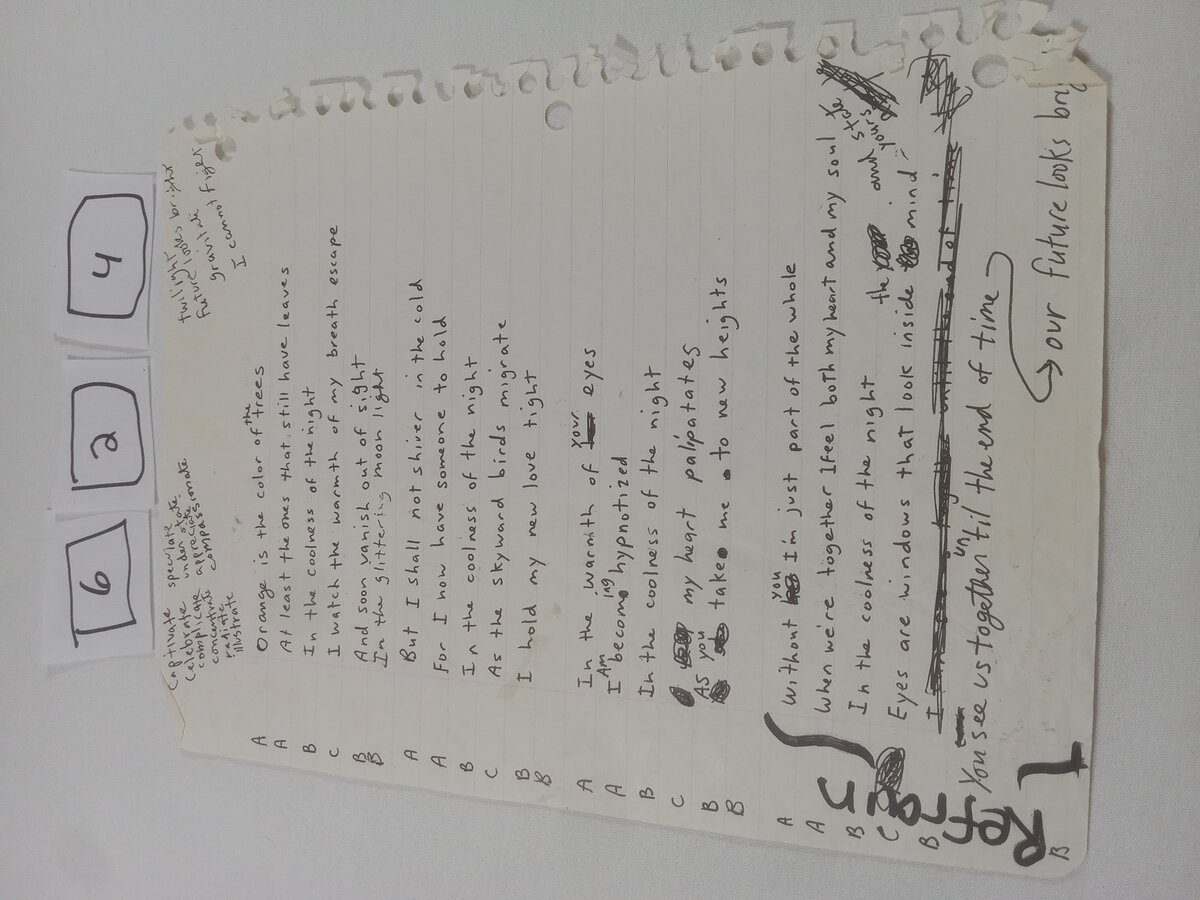 6 2 4
captivate speculate
celebrate understate
complicate appreciate
concentrate compassionate
radiate compass
illustrate
twilight bright
future looks bright
gravitate
I cannot fight
A Orange is the color of the trees
A At least the ones that still have leaves
B In the coolness of the night
C I watch the warmth of my breath escape
B And soon vanish out of sight
B In the glittering moon light
A But I shall not shiver in the cold
A For I now have someone to hold
B In the coolness of the night
C As the skyward birds migrate
B I hold my new love tight
B
A In the warmth of your eyes
A I Am becoming hypnotized
B In the coolness of the night
C my heart palipatates
B As you take me to new heights
B
A Without you I'm just part of the whole
A When we're together I feel both my heart and my soul
B In the coolness of the night
C Eyes are windows that look inside the mind and yours
B I
You see us together until the end of time
B our future looks brig
Refrain